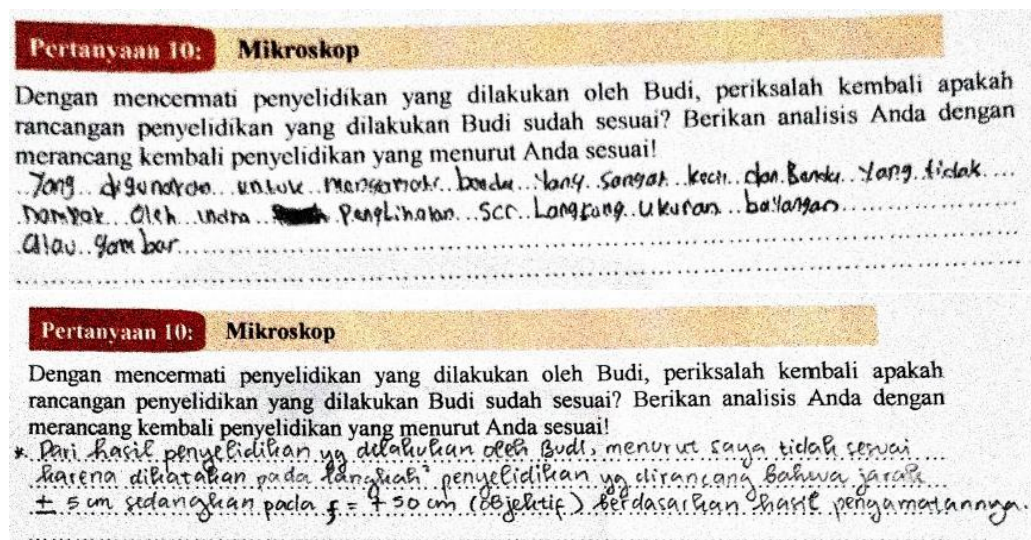 Pertanyaan 10: Mikroskop
Dengan mencermati penyelidikan yang dilakukan oleh Budi, periksalah kembali apakah
rancangan penyelidikan yang dilakukan Budi sudah sesuai? Berikan analisis Anda dengan
merancang kembali penyelidikan yang menurut Anda sesuai!
Yang digunakan untuk mengamati benda yang sangat kecil dan Benda yang tidak
nampak Oleh indra Penglihatan scr Langsung Ukuran bayangan
atau gambar
Pertanyaan 10: Mikroskop
Dengan mencermati penyelidikan yang dilakukan oleh Budi, periksalah kembali apakah
rancangan penyelidikan yang dilakukan Budi sudah sesuai? Berikan analisis Anda dengan
merancang kembali penyelidikan yang menurut Anda sesuai!
* Dari hasil penyelidikan yg dilakukan oleh Budi, menurut saya tidak sesuai
karena dikatakan pada langkah² penyelidikan yg dirancang Bahwa jarak
± 5 cm sedangkan pada f = + 50 cm (objektif) berdasarkan hasil pengamatannya.